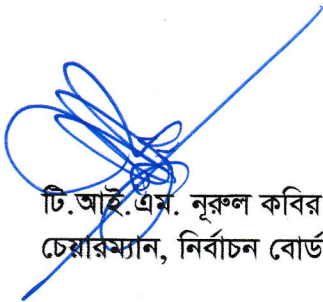 টি.আই.এম. নূরুল কবির
চেয়ারম্যান, নির্বাচন বোর্ড